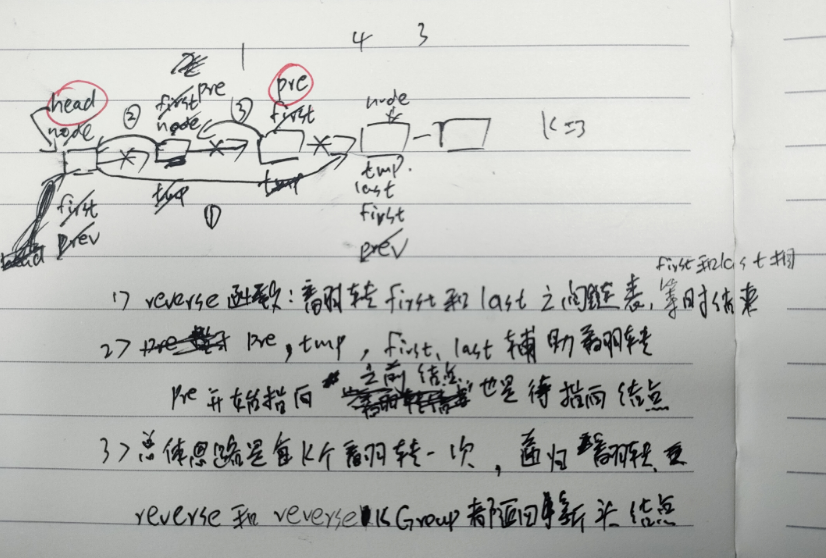 1 4 3
pre
head first pre node
② ③ first
node node K=3
tmp tmp tmp.
① last
first first
prev prev
first和last相
1> reverse函数：翻转first和last之间链表，等时结束
2> pre，tmp，first、last辅助翻转
pre开始指向 之前结点 也是待指向结点
3> 总体思路是每K个翻转一次，递归翻转
reverse和reverseKGroup都返回新头结点